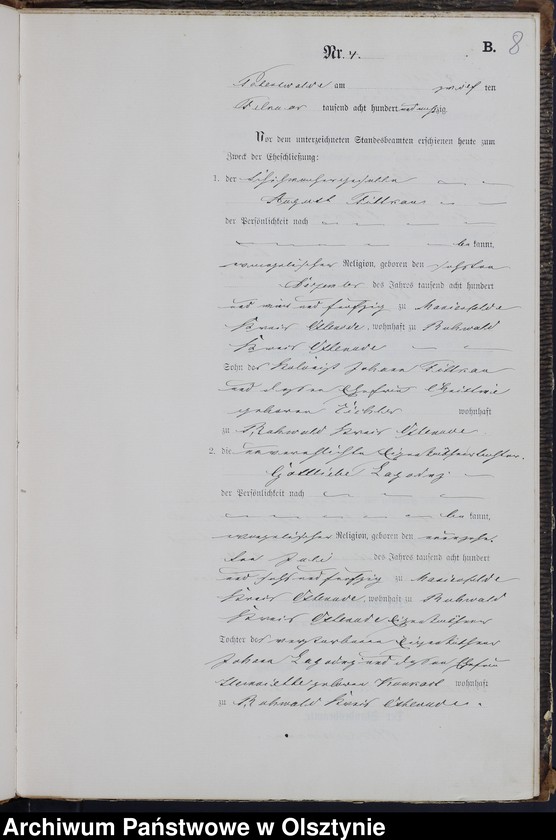 B. 8
Nr. 4.
am zwölf ten
Februar tausend acht hundert und achtzig
Vor dem unterzeichneten Standesbeamten erschienen heute zum
Zweck der Eheschließung:
1. der
August Tittkau
der Persönlichkeit nach
bekannt,
evangelischer Religion, geboren den sechsten
November des Jahres tausend acht hundert
und vier und fünfzig zu Marienfelde
Kreis Osterode, wohnhaft zu Ruhwald
Kreis Osterode
Sohn des Johann Tittkau
und dessen Ehefrau Christine
geboren wohnhaft
zu Ruhwald Kreis Osterode
2. die unverehelichte Eigenkäthnertochter,
Gottliebe
der Persönlichkeit nach
bekannt,
evangelischer Religion, geboren den neunzehn-
ten Juli des Jahres tausend acht hundert
und sechs und fünfzig zu Marienfelde
Kreis Osterode, wohnhaft zu Ruhwald
Kreis Osterode Eigenkäthner
Tochter des verstorbenen Eigenkäthner
Johann und dessen Ehefrau
Henriette geboren wohnhaft
zu Ruhwald Kreis Osterode.
Archiwum Państwowe w Olsztynie